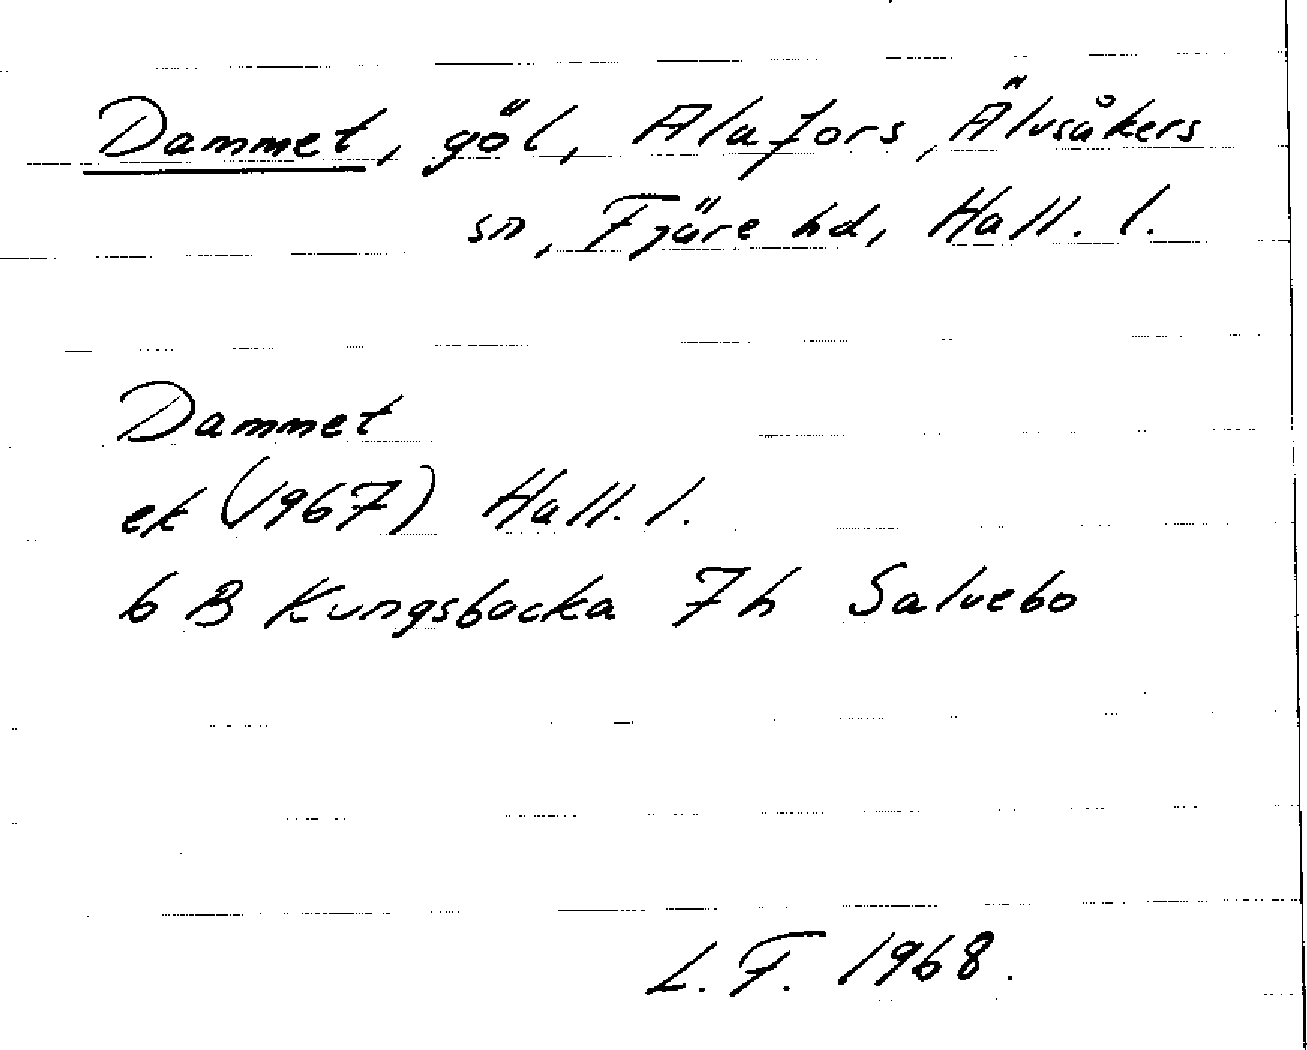 Dammet, göl, Alafors, Älvsåkers
sn, Fjäre hd, Hall. l.
Dammet
ek (1967) Hall. l.
6 B Kungsbacka 7h Salvebo
L.F. 1968.